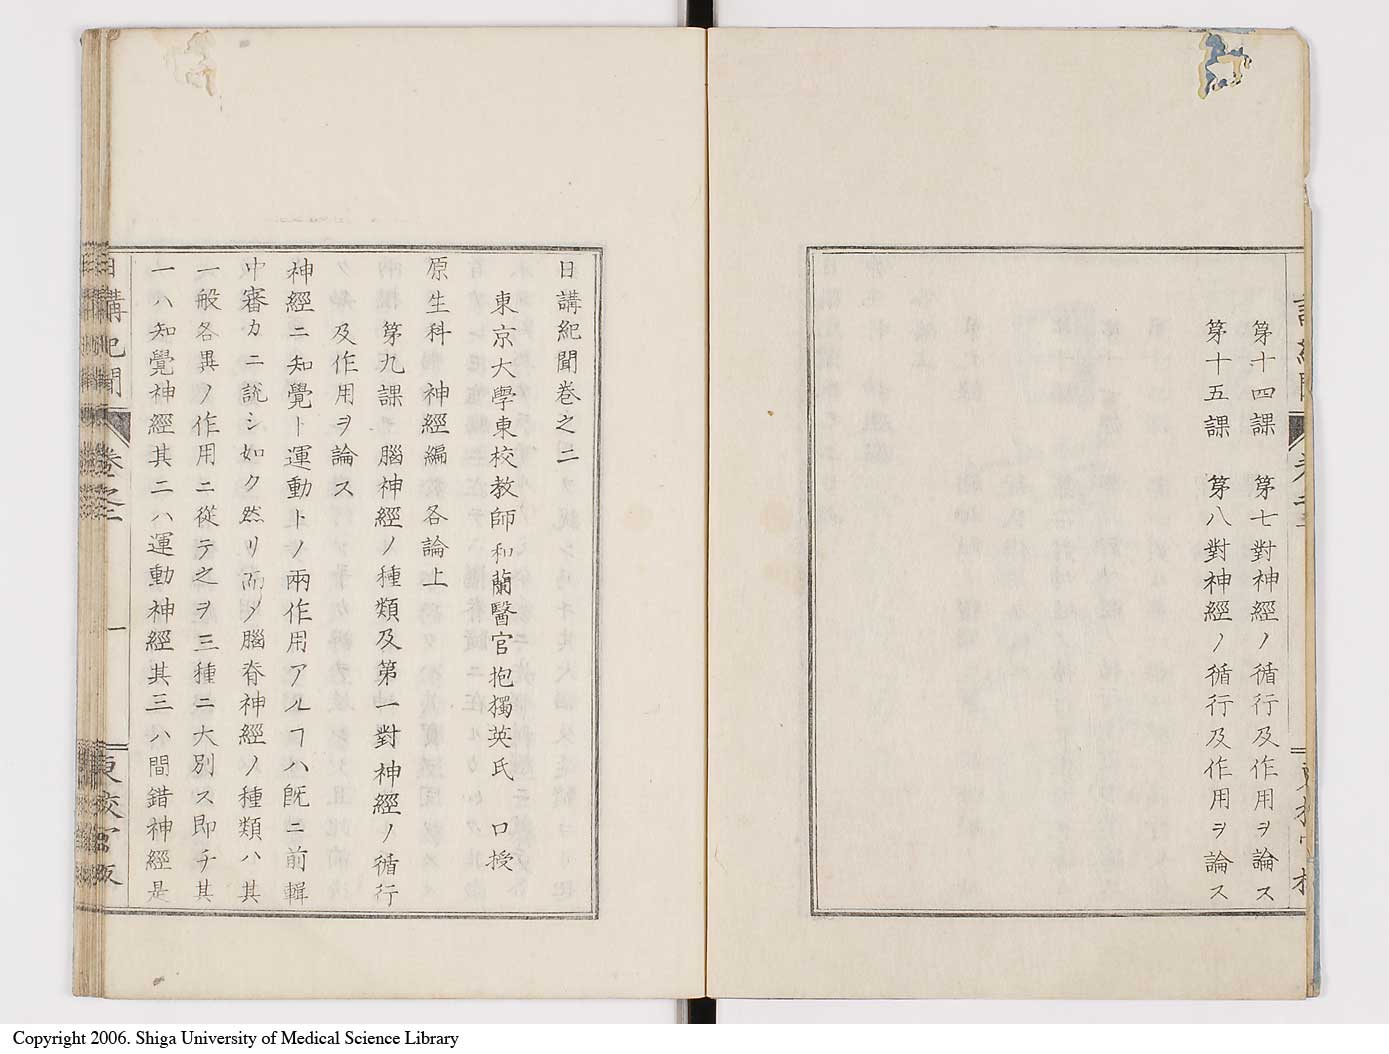 第十四課　第七對神經ノ循行及作用ヲ論ス
第十五課　第八對神經ノ循行及作用ヲ論ス
日講紀聞卷之二
東京大學東校教師和蘭醫官抱獨英氏　口授
原生科　神經編各論上
第九課　腦神經ノ種類及第一對神經ノ循行
及作用ヲ論ス
神經ニ知覺ト運動トノ兩作用アルヿハ旣ニ前輯
中審カニ說シ如ク然リ而メ腦脊神經ノ種類ハ其
一般各異ノ作用ニ從テ之ヲ三種ニ大別ス即チ其
一ハ知覺神經其二ハ運動神經其三ハ間錯神經是
日講紀聞　卷之二　一　東校官版
Copyright 2006. Shiga University of Medical Science Library